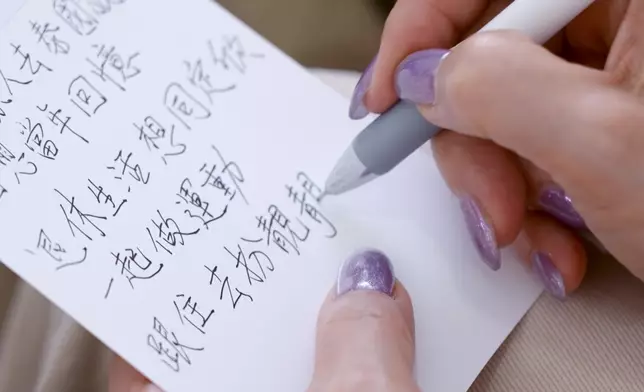 人去泰國
當年回憶
退休生活想同
一起做運動
跟住去扮靚靚